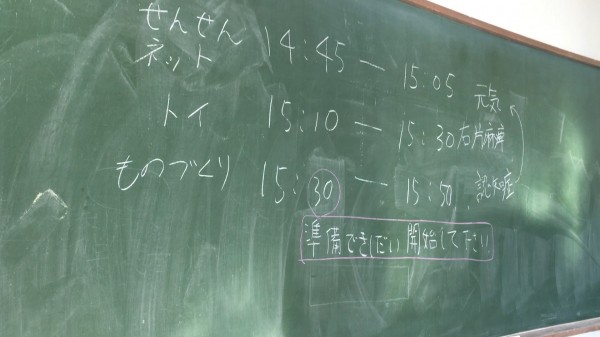 せんせん
ネット 14:45 — 15:05 元気
トイ 15:10 — 15:30 右片麻痺
ものづくり 15:30 — 15:50 認知症
準備できしだい開始して下さい